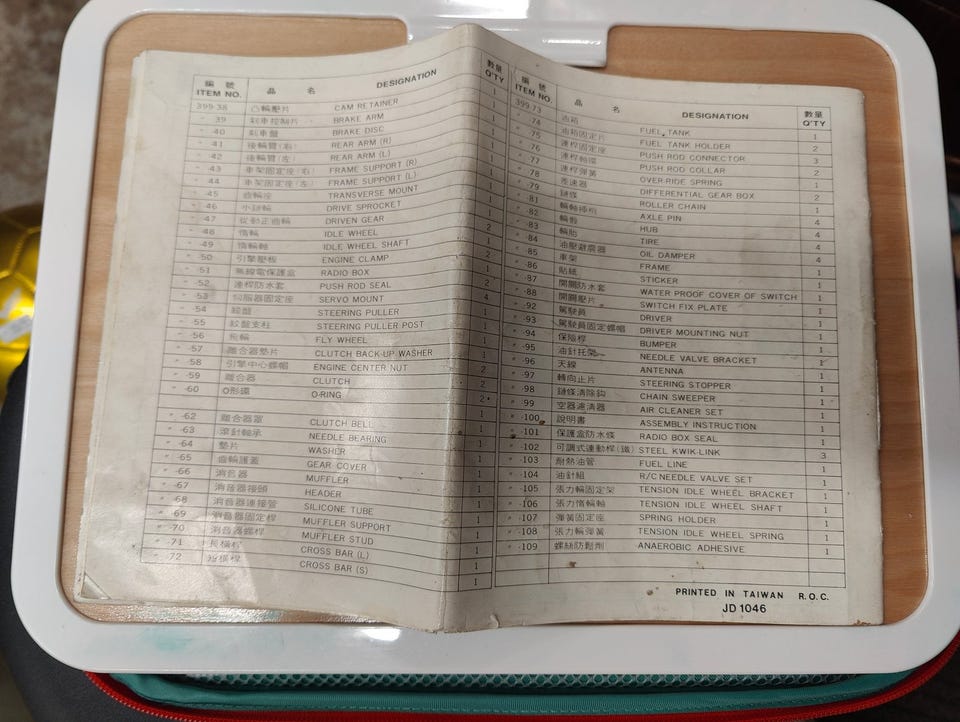 編號 品名 數量
ITEM NO. DESIGNATION Q'TY
399-38 凸輪壓片 CAM RETAINER 1
〃 -39 剎車控制片 BRAKE ARM 1
〃 -40 剎車盤 BRAKE DISC 1
〃 -41 後輪臂(右) REAR ARM (R) 1
〃 -42 後輪臂(左) REAR ARM (L) 1
〃 -43 車架固定座(右) FRAME SUPPORT (R) 1
〃 -44 車架固定座(左) FRAME SUPPORT (L) 1
〃 -45 齒輪座 TRANSVERSE MOUNT 1
〃 -46 小鏈輪 DRIVE SPROCKET 1
〃 -47 從動正齒輪 DRIVEN GEAR 1
〃 -48 惰輪 IDLE WHEEL 2
〃 -49 惰輪軸 IDLE WHEEL SHAFT 1
〃 -50 引擎壓板 ENGINE CLAMP 2
〃 -51 無線電保護盒 RADIO BOX 1
〃 -52 連桿防水套 PUSH ROD SEAL 2
〃 -53 伺服器固定座 SERVO MOUNT 4
〃 -54 絞盤 STEERING PULLER 1
〃 -55 絞盤支柱 STEERING PULLER POST 1
〃 -56 飛輪 FLY WHEEL 1
〃 -57 離合器墊片 CLUTCH BACK-UP WASHER 1
〃 -58 引擎中心螺帽 ENGINE CENTER NUT 2
〃 -59 離合器 CLUTCH 2
〃 -60 O形環 O-RING 2
〃 -62 離合器罩 CLUTCH BELL 1
〃 -63 滾針軸承 NEEDLE BEARING 1
〃 -64 墊片 WASHER 1
〃 -65 齒輪護蓋 GEAR COVER 1
〃 -66 消音器 MUFFLER 1
〃 -67 消音器接頭 HEADER 1
〃 -68 消音器連接管 SILICONE TUBE 1
〃 -69 消音器固定桿 MUFFLER SUPPORT 1
〃 -70 消音器螺桿 MUFFLER STUD 1
〃 -71 長橫桿 CROSS BAR (L) 1
〃 -72 短橫桿 CROSS BAR (S) 1
編號 品名 數量
ITEM NO. DESIGNATION Q'TY
399-73 油箱 FUEL TANK 1
〃 -74 油箱固定片 FUEL TANK HOLDER 2
〃 -75 連桿固定座 PUSH ROD CONNECTOR 3
〃 -76 連桿軸環 PUSH ROD COLLAR 2
〃 -77 連桿彈簧 OVER-RIDE SPRING 1
〃 -78 差速器 DIFFERENTIAL GEAR BOX 2
〃 -79 鏈條 ROLLER CHAIN 1
〃 -81 輪軸插梢 AXLE PIN 4
〃 -82 輪轂 HUB 4
〃 -83 輪胎 TIRE 4
〃 -84 油壓避震器 OIL DAMPER 4
〃 -85 車架 FRAME 1
〃 -86 貼紙 STICKER 1
〃 -87 開關防水套 WATER PROOF COVER OF SWITCH 1
〃 -88 開關壓片 SWITCH FIX PLATE 1
〃 -92 駕駛員 DRIVER 1
〃 -93 駕駛員固定螺帽 DRIVER MOUNTING NUT 1
〃 -94 保險桿 BUMPER 1
〃 -95 油針托架 NEEDLE VALVE BRACKET 1
〃 -96 天線 ANTENNA 1
〃 -97 轉向止片 STEERING STOPPER 1
〃 -98 鏈條清除鈎 CHAIN SWEEPER 1
〃 -99 空器濾清器 AIR CLEANER SET 1
〃 -100 說明書 ASSEMBLY INSTRUCTION 1
〃 -101 保護盒防水條 RADIO BOX SEAL 1
〃 -102 可調式連動桿(鐵) STEEL KWIK-LINK 3
〃 -103 耐熱油管 FUEL LINE 1
〃 -104 油針組 R/C NEEDLE VALVE SET 1
〃 -105 張力輪固定架 TENSION IDLE WHEEL BRACKET 1
〃 -106 張力惰輪軸 TENSION IDLE WHEEL SHAFT 1
〃 -107 彈簧固定座 SPRING HOLDER 1
〃 -108 張力輪彈簧 TENSION IDLE WHEEL SPRING 1
〃 -109 螺絲防鬆劑 ANAEROBIC ADHESIVE 1
PRINTED IN TAIWAN R.O.C.
JD1046